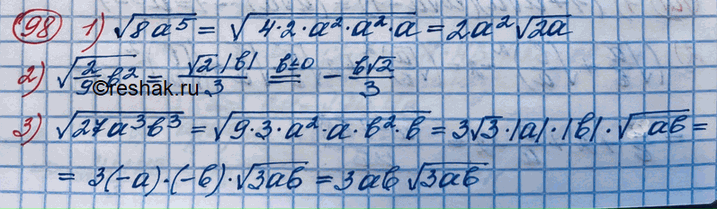 98 1) √(8a⁵) = √(4·2·a²·a²·a) = 2a²√(2a)
2) √(2/9 b²) = √2|b|/3 = b≤0 = − b√2/3
©reshak.ru
3) √(27a³b³) = √(9·3·a²·a·b²·b) = 3√3·|a|·|b|·√(ab) =
= 3(−a)·(−b)·√(3ab) = 3ab√(3ab)